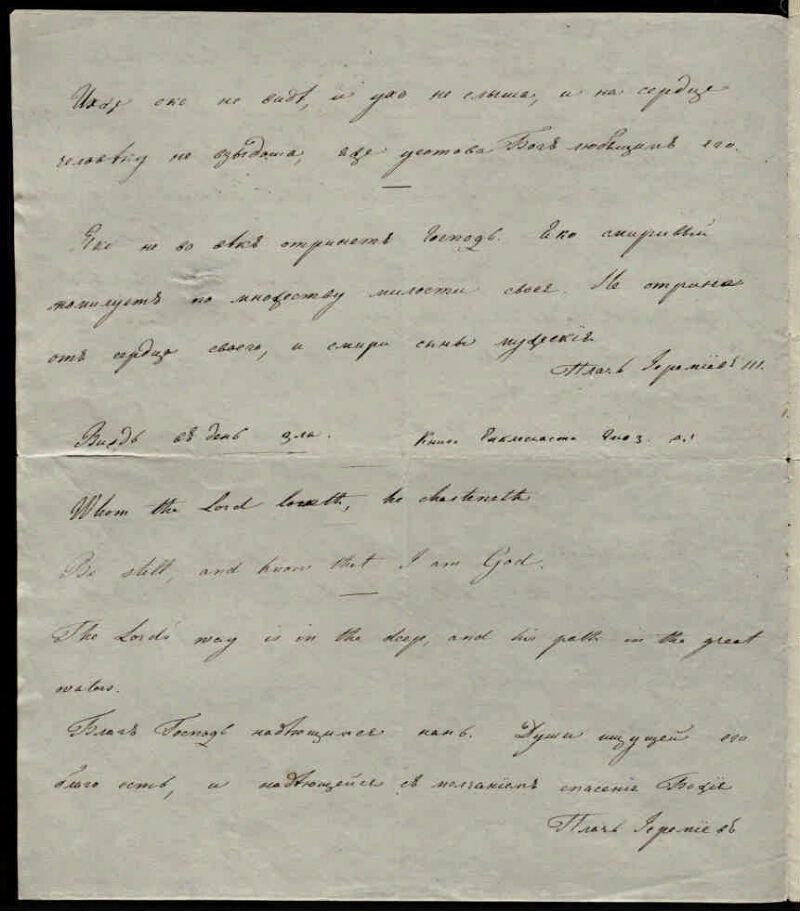 Ихже око не видѣ, и ухо не слыша, и на сердце
человѣку не взыдоша, яже уготова Богъ любящимъ его.
Яко не во вѣкъ отринетъ Господь. Яко смиривый
помилуетъ по множеству милости своея. Не отрину
отъ сердца своего, и смири сыны мужескія.
Плачь Іереміевъ III.
Виждь въ день зла. Книга Екклесіаста Глаз.
Whom the Lord loveth, he chasteneth
Be still, and know that I am God.
The Lord's way is in the deep, and his path in the great
waters.
Благъ Господь надѣющимся нань. Души ищущей его
благо есть, и надѣющейся съ молчаніемъ спасенія Божія
Плачь Іереміевъ